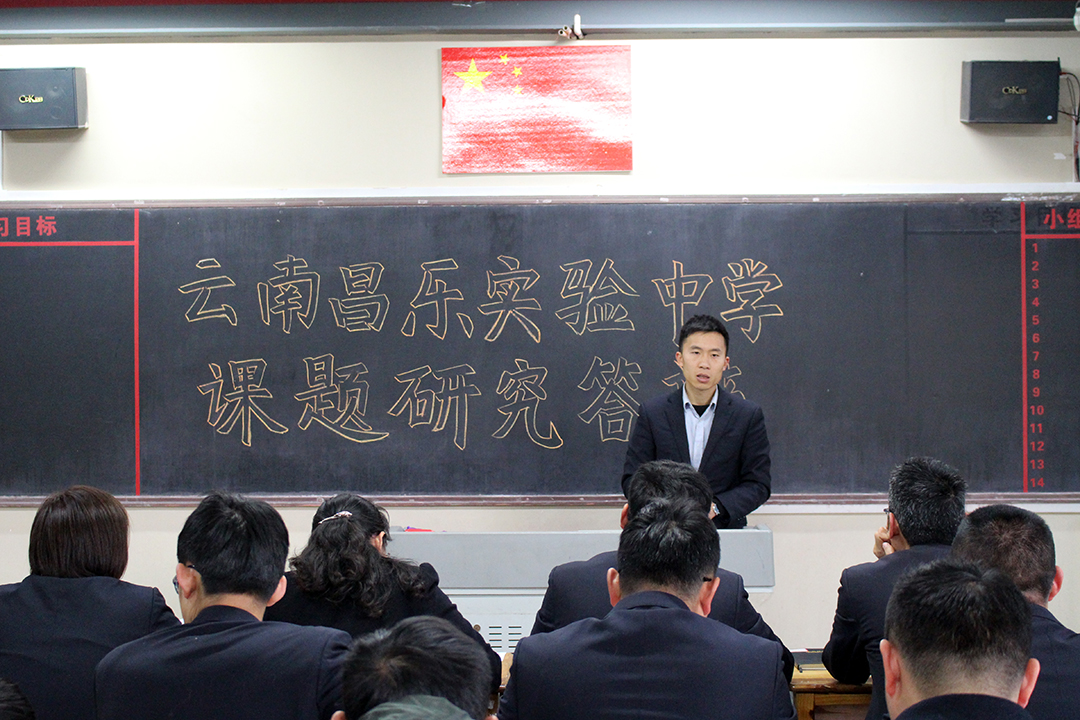 习目标
云南昌乐实验中学
课题研究答
学习
小组
1
2
3
4
5
6
7
8
9
10
11
12
13
14